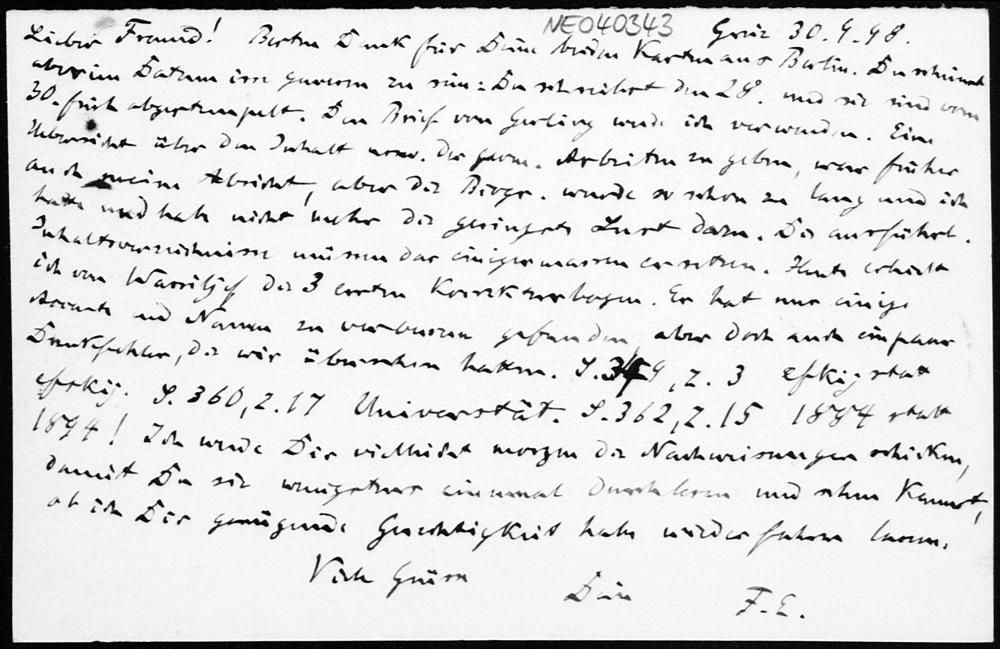 NE040343
Graz 30.9.98.
Lieber Freund! Besten Dank für Deine beiden Karten aus Berlin. Du scheinst
aber im Datum irre gewesen zu sein: Du schreibst den 28. und sie sind vom
30. früh abgestempelt. Den Brief von Gerling werde ich verwenden. Eine
Uebersicht über den Inhalt usw. der germ. Arbeiten zu geben, war früher
auch meine Absicht, aber die Biogr. wurde so schon zu lang und ich
hatte und habe nicht mehr die geringste Lust dazu. Die ausführl.
Inhaltsverzeichnisse müssen das einigermassen ersetzen. Heute erhielt
ich von Wassiljef die 3 ersten Korrekturbogen. Er hat nur einige
Accente und Namen zu verbessern gefunden, aber doch auch ein paar
Druckfehler, die wir übersehen hatten. S. 359, Z. 3 efkij statt
efskij. S. 360, Z. 17 Universtät. S. 362, Z. 15 1884 statt
1894! Ich werde Dir vielleicht morgen die Nachweisungen schicken,
damit Du sie wenigstens einmal durchlesen und sehen kannst,
ob ich Dir genügende Gerechtigkeit habe widerfahren lassen.
Viele Grüsse
Dein
F. E.